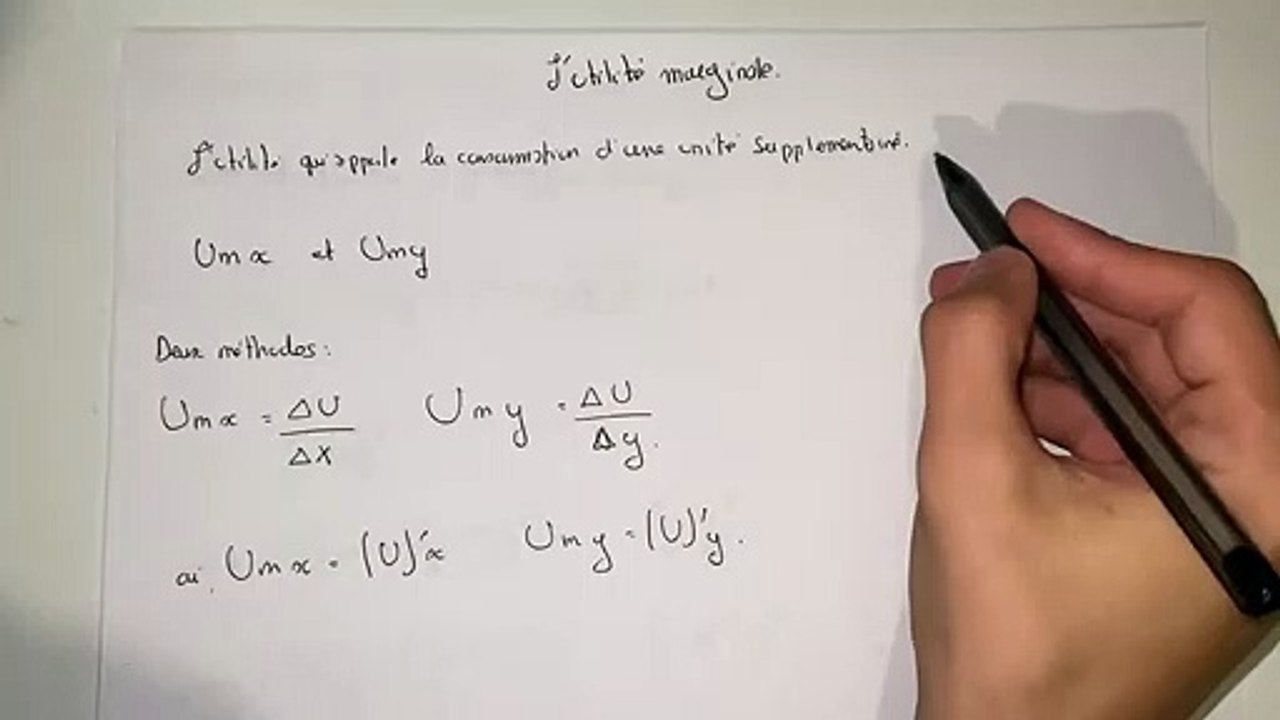 L'utilité marginale.
L'utilité qu'apporte la consommation d'une unité supplémentaire.
Umx et Umy
Deux méthodes:
Umx = ΔU/ΔX Umy = ΔU/Δy.
ou Umx = (U)'x Umy = (U)'y.